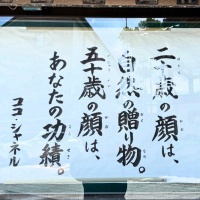 二十歳の顔は、
自然の贈り物。
五十歳の顔は、
あなたの功績。
ココ・シャネル